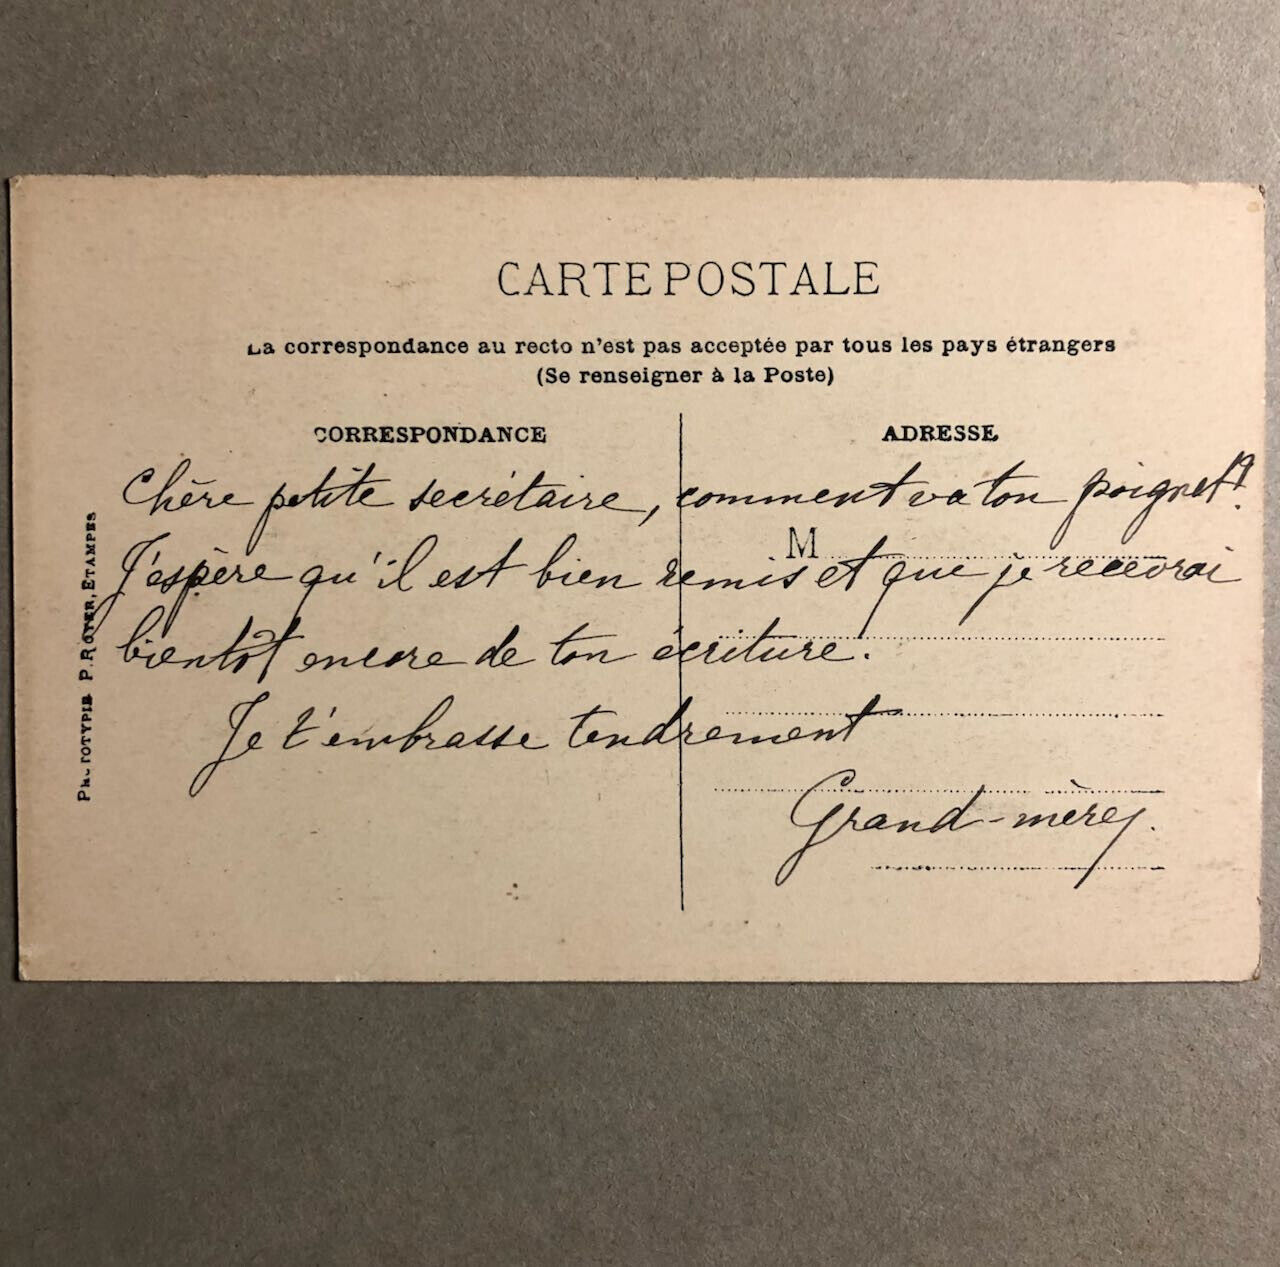 CARTE POSTALE
La correspondance au recto n'est pas acceptée par tous les pays étrangers
(Se renseigner à la Poste)
CORRESPONDANCE
ADRESSE
Chère petite secrétaire, comment va ton poignet?
M
J'espère qu'il est bien remis et que je recevrai
bientôt encore de ton écriture.
Je t'embrasse tendrement
Grand-mère.
PHOTOTYPIE P. ROYER, ÉTAMPES